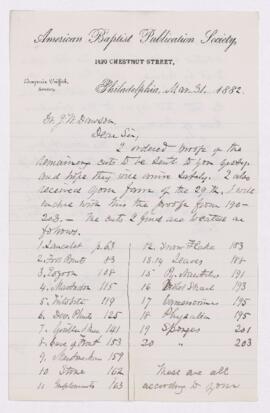 American Baptist Publication Society,
1420 CHESTNUT STREET,
Benjamin Griffith,
Secretary.
Philadelphia, Mar. 31, 1882.
Dr. J. W. Dawson,
Dear Sir,
I ordered proofs of the
remaining cuts to be sent to you yesterday
and hope they will arrive safely. I also
received your favor of the 29th, I will
enclose with this the proofs from 190-
203,- The cuts I find are marked as
follows.
1. Lancelet p. 63
2. Foot Prints 83
3. Eozoon 108
4. 115
5. 119
6. Dev. Plants 125
7. 141
8. 153
9. 159
10. Stone 162
11. Implements 163
12. Snow Flake 183
13. 14 Leaves 188
15. P. Nautilus 191
16. Shell 193
17. 195
18. Physalia 195
19. Sponges 201
20 " 203
These are all
according to your